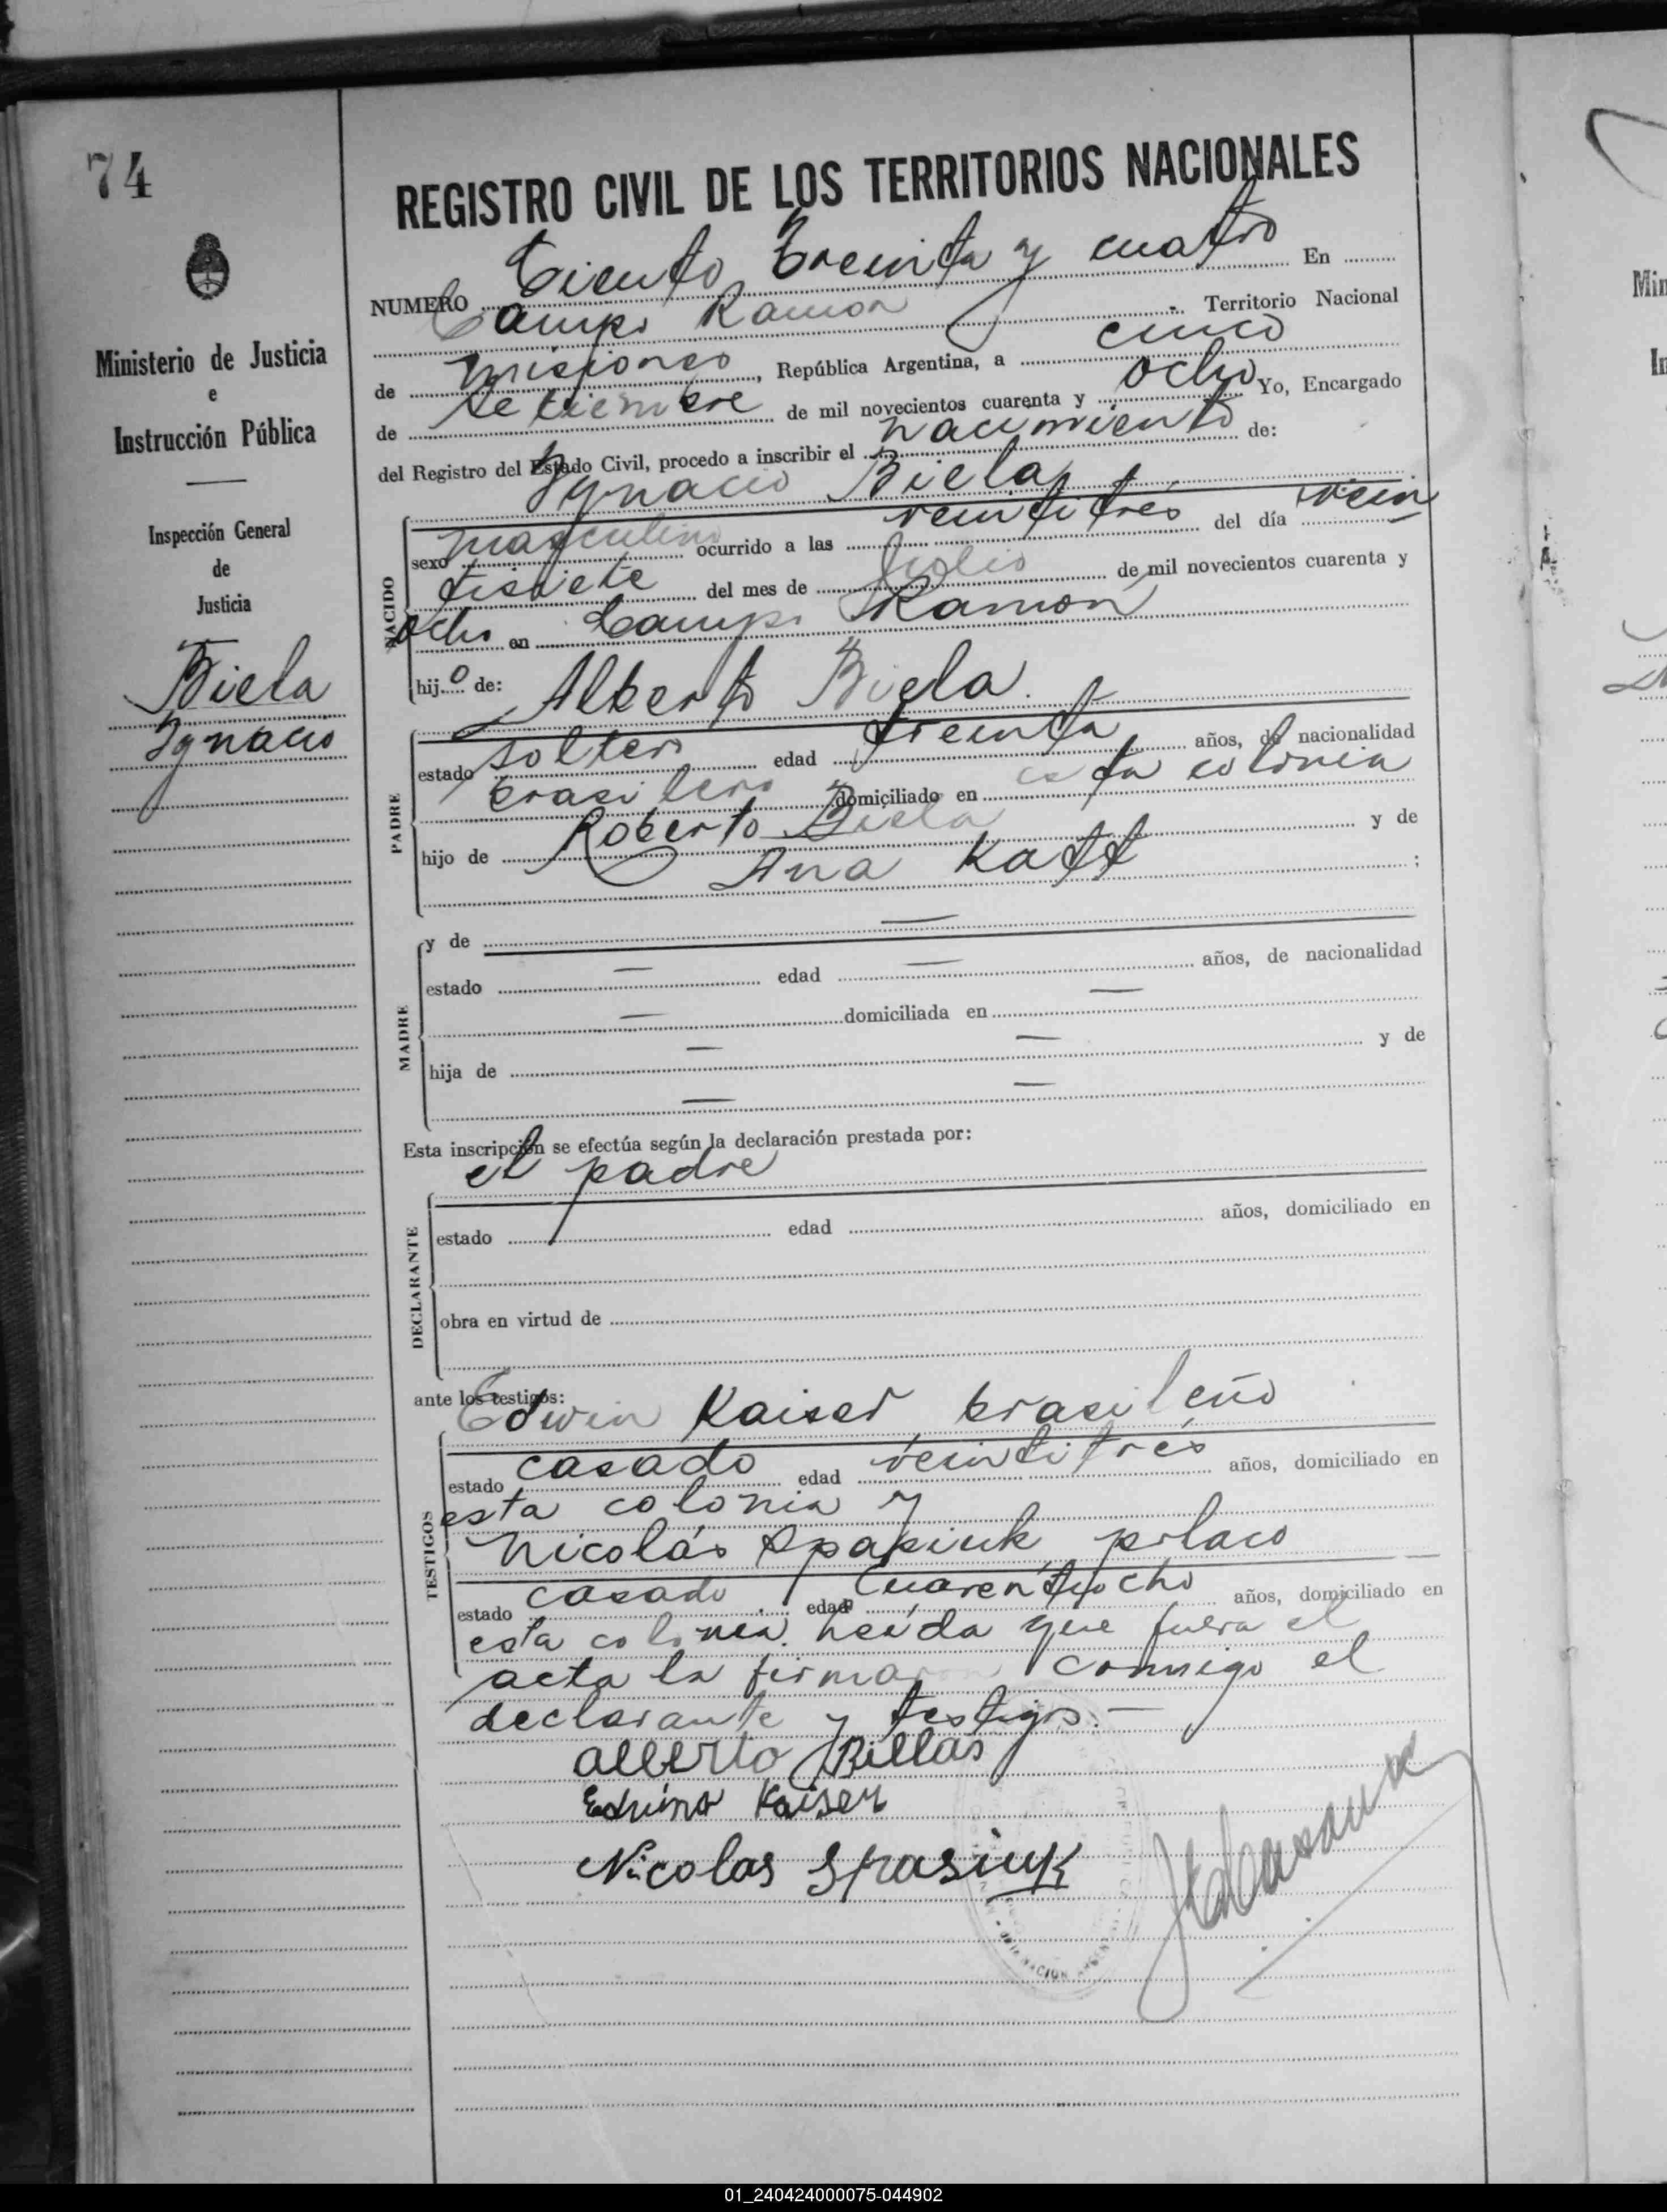 74
Ministerio de Justicia
e
Instrucción Pública
Inspección General
de
Justicia
Biela
Ygnacio
REGISTRO CIVIL DE LOS TERRITORIOS NACIONALES
NUMERO Ciento treinta y cuatro En
Campo Ramon Territorio Nacional
de Misiones, República Argentina, a cinco
de Setiembre de mil novecientos cuarenta y ocho Yo, Encargado
del Registro del Estado Civil, procedo a inscribir el nacimiento de:
Ygnacio Biela
NACIDO
sexo masculino ocurrido a las veintitrés del día vein
tisiete del mes de Julio de mil novecientos cuarenta y
ocho en Campo Ramón
hijo de: Alberto Biela.
PADRE
estado soltero edad treinta años, de nacionalidad
brasilero domiciliado en esta colonia
hijo de Roberto Biela y de
Ana Katt ;
MADRE
y de —
estado — edad — años, de nacionalidad
— domiciliada en —
hija de — — y de
— —
Esta inscripción se efectúa según la declaración prestada por:
el padre
DECLARANTE
estado edad años, domiciliado en
obra en virtud de
ante los testigos:
Edwin Kaiser brasileño
TESTIGOS
estado casado edad veintitrés años, domiciliado en
esta colonia y
Nicolás Spasiuk polaco
estado casado edad cuarentiocho años, domiciliado en
esta colonia. Leída que fuera el
acta la firmaron conmigo el
declarante y testigos.—
alberto Billas
Edvino Kaiser
Nicolas Spasiuk
01_240424000075-044902